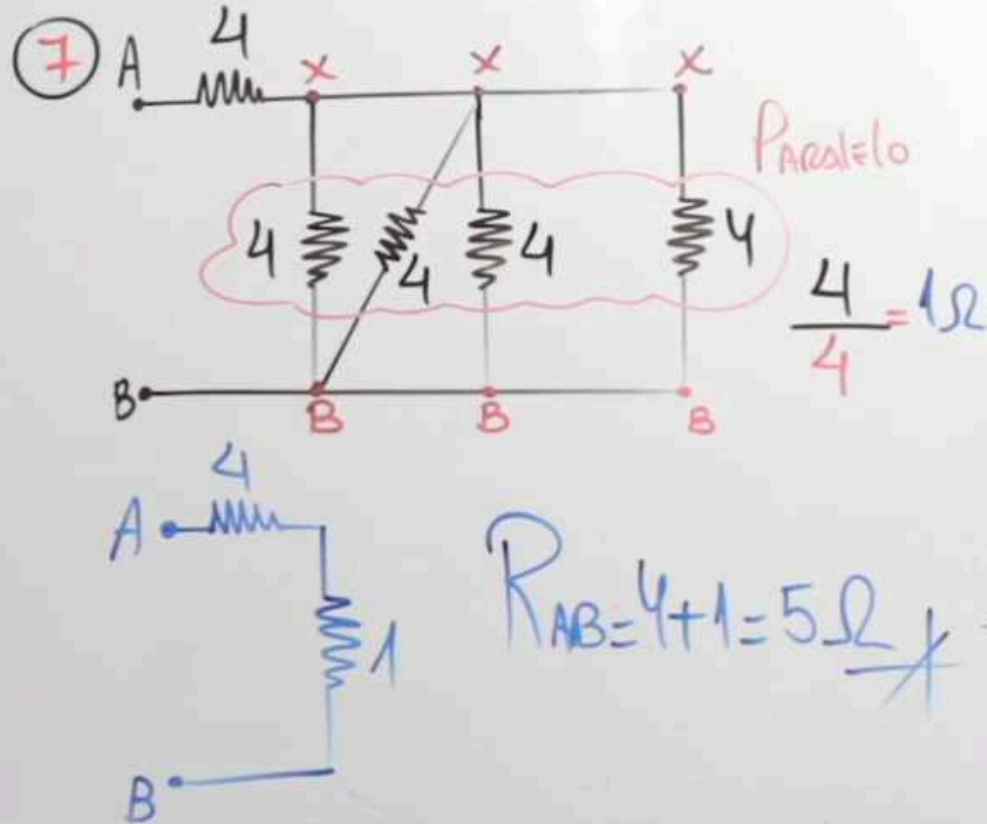 7 A 4 X X X
Paralelo
4 4 4 4
4/4 = 1Ω
B B B B
4
A
1
R_AB = 4+1 = 5Ω
B